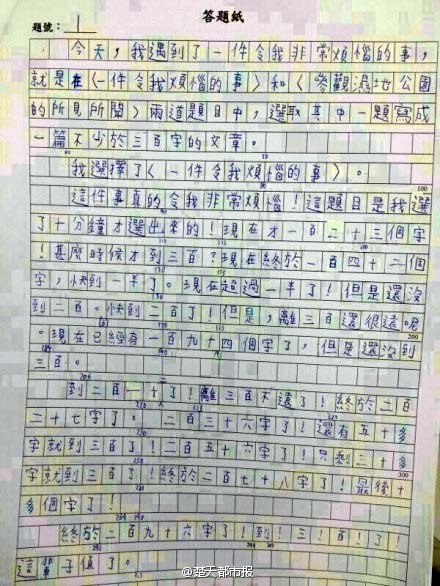 答題紙
題號：1
今天，我遇到了一件令我非常煩惱的事，
就是在〈一件令我煩惱的事〉和〈參觀濕地公園
的所見所聞〉兩道題目中，選取其中一題寫成
一篇不少於三百字的文章。
我選擇了〈一件令我煩惱的事〉。
這件事真的令我非常煩惱！這題目是我選
了十分鐘才選出來的！現在才一百二十三個字
！甚麼時候才到三百？現在終於一百四十二個
字，快到一半了。現在超過一半了！但是還沒
到二百。快到二百了！但是，離三百還很遠。
。現在已經有一百九十四個字了，但是還沒到
三百。
到二百一十了！離三百不遠了！終於二百
二十七字了。二百三十六字了！還有五十多
字就到三百了！二百五十六字了！只剩三十多
字就到三百了！終於二百七十八字了！最後十
多個字了！
終於二百九十六字了！到！三！百！了！
這 字值了。
100
200
300
@楚天都市报